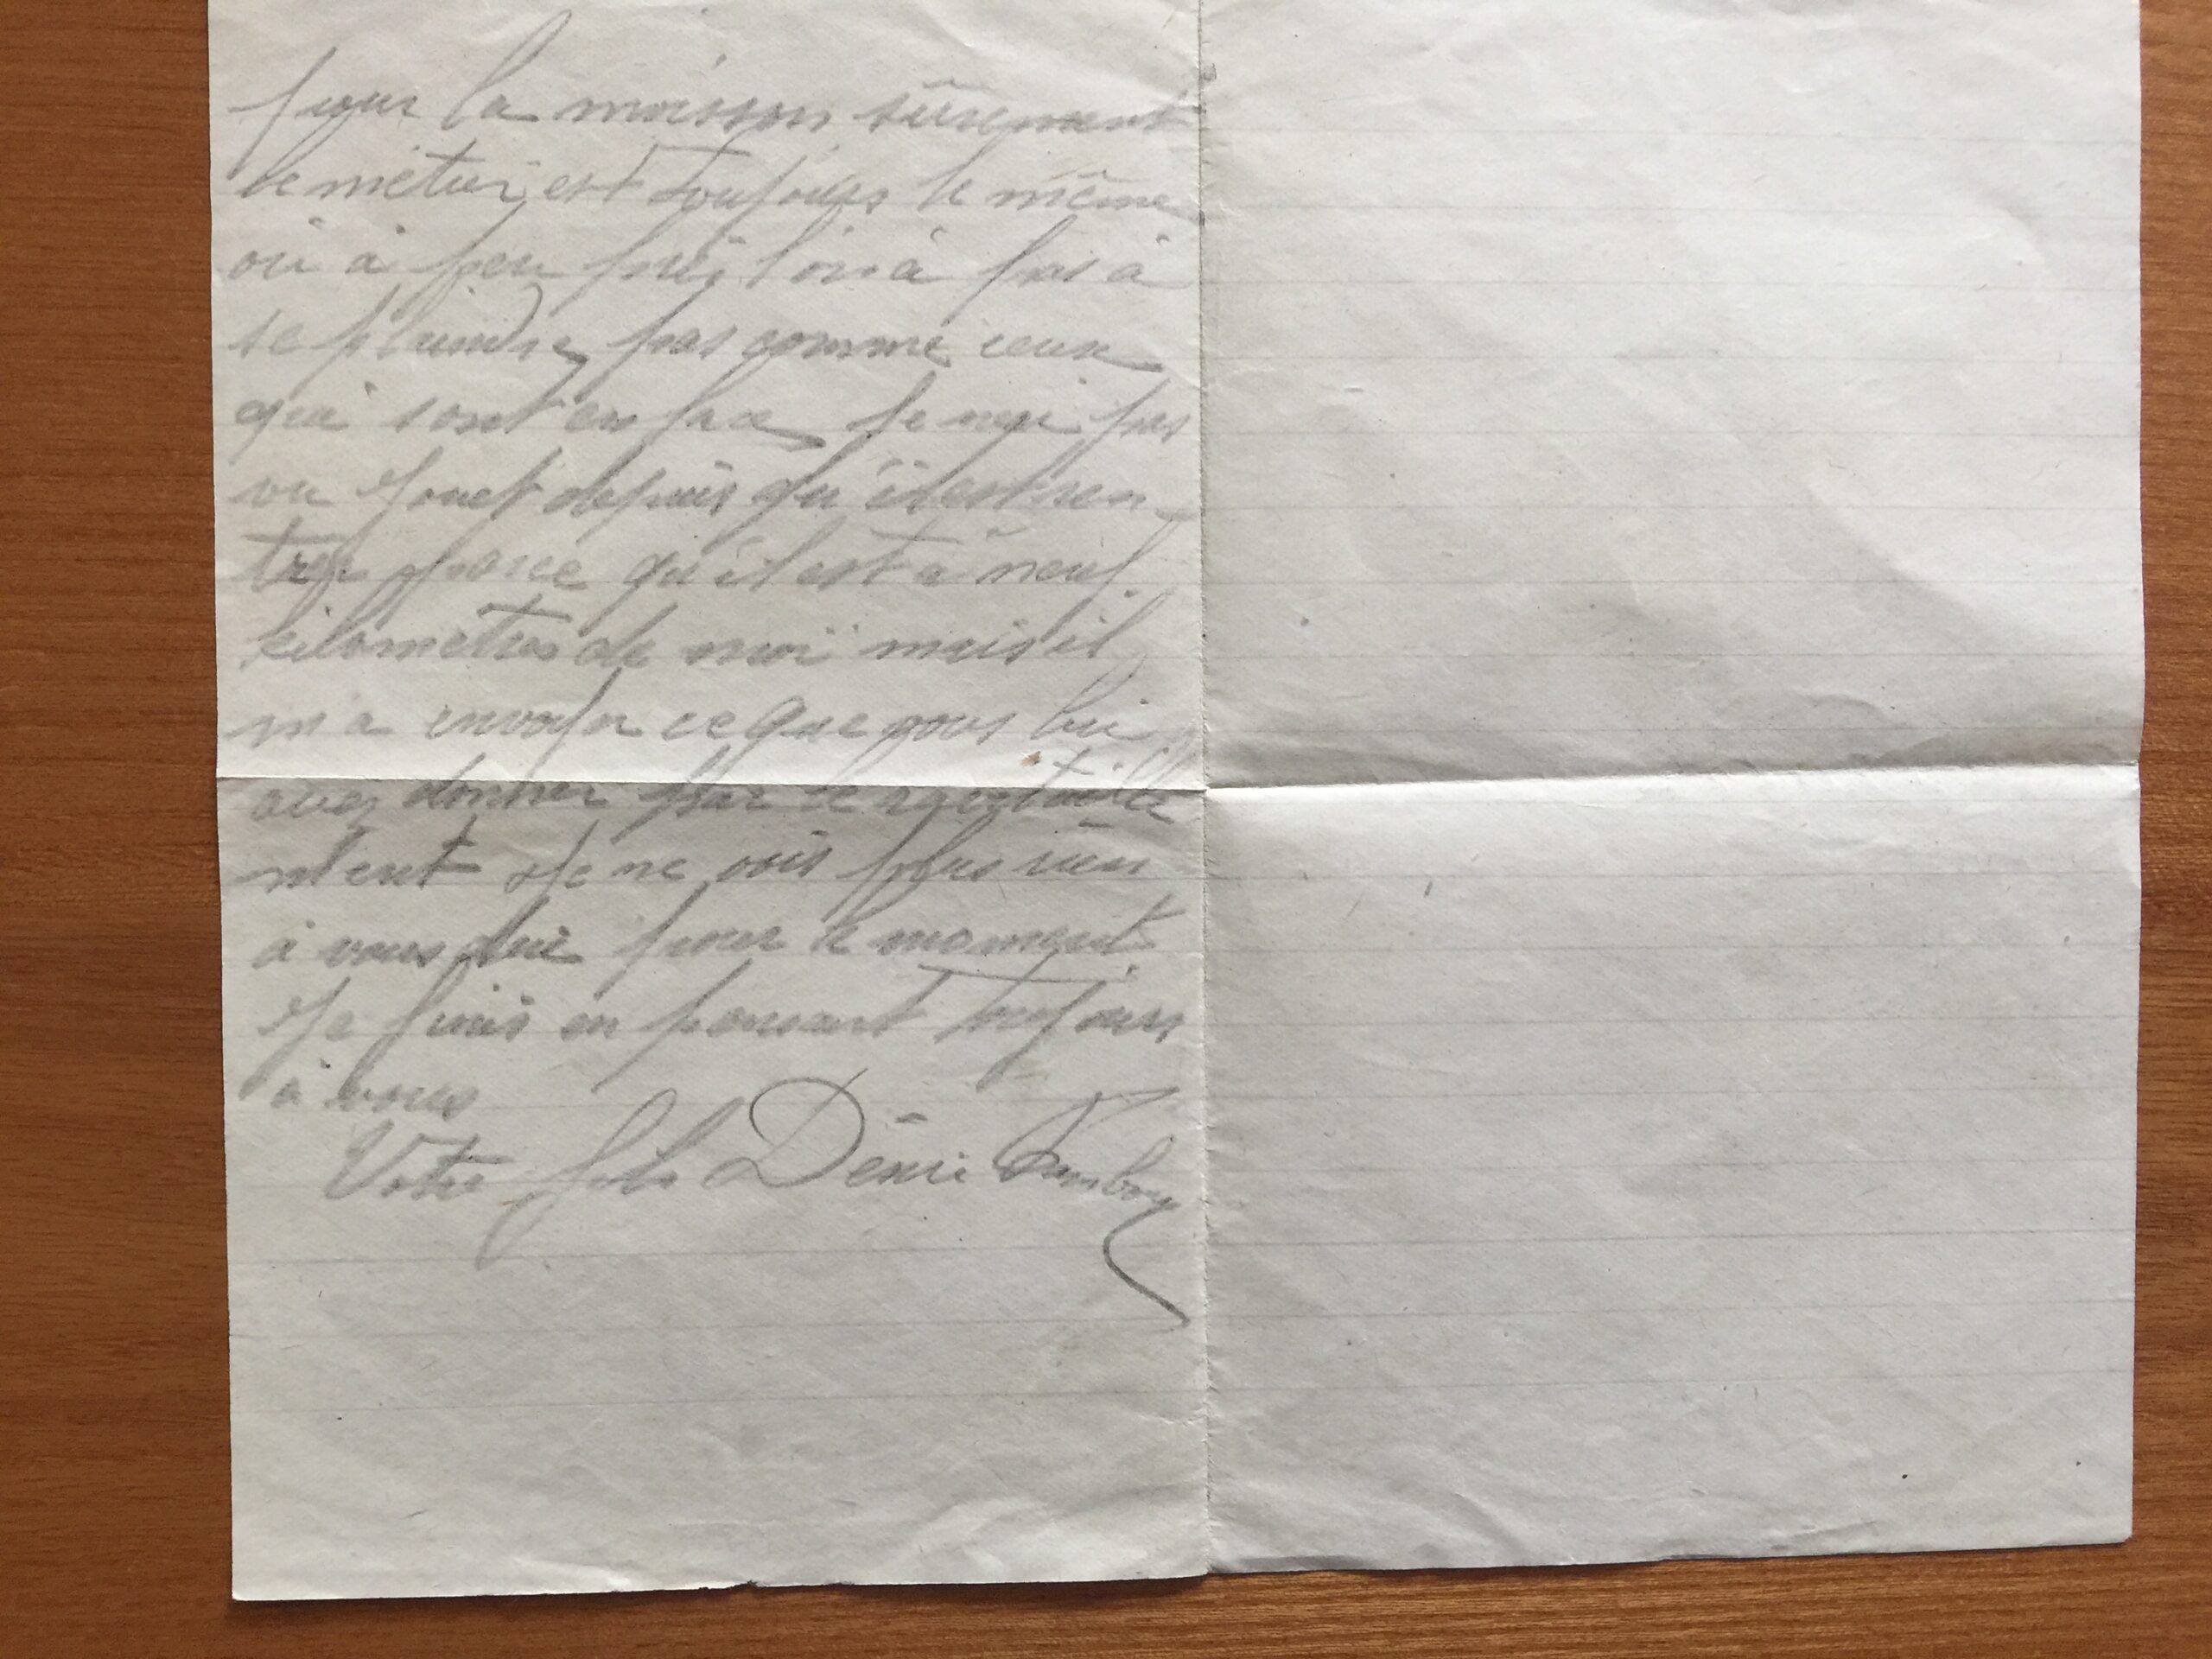 pour la moisson surement
le métier est toujours le même
ou à peu près l'on a pas à
se plaindre pas comme ceux
qui sont en face Je nai pas
vu Jouet depuis qu'il est ren
trer parce qu'il est a neuf
kilometres de moi mais il
m'a envoyer ce que vous lui
avez donner par le ravitaille
ment Je ne vois plus rien
à vous dire pour le moment
Je finis en pensant toujours
à vous
Votre fils